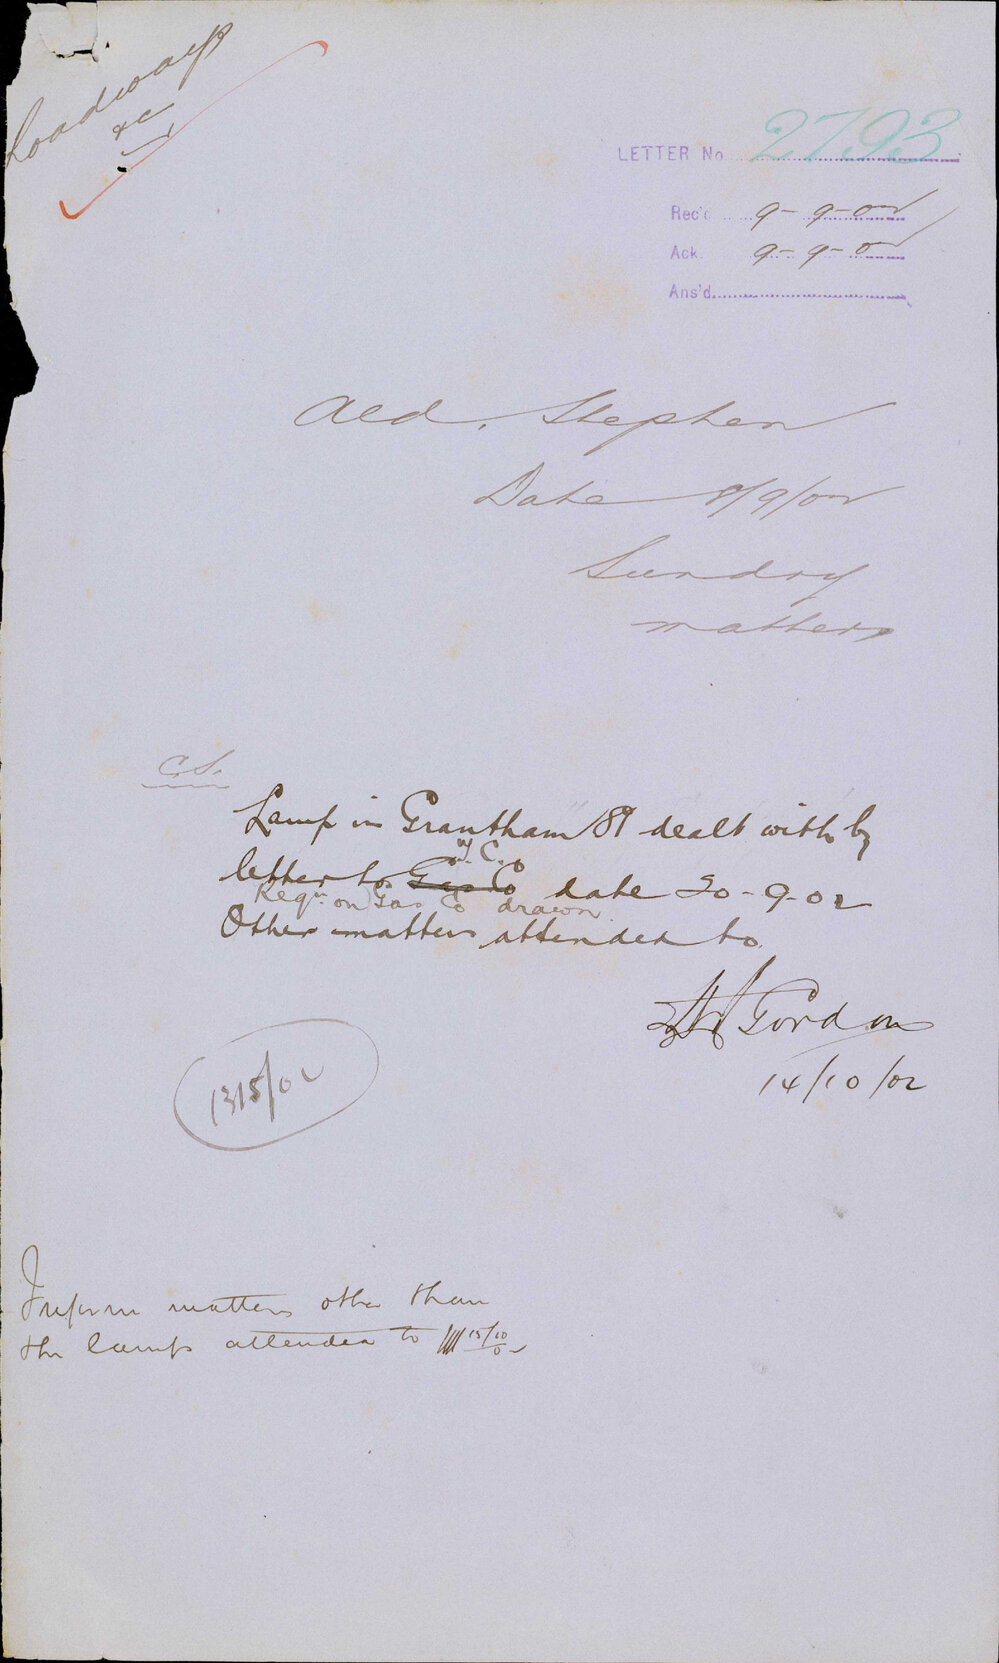 Roadways
&c
LETTER No 2793
Rec'd 9-9-02
Ack. 9-9-02
Ans'd
Ald. Stephen
Date 8/9/02
Sundry
matters
C.S.
Lamp in Grantham St dealt with by
letter to Gas Co date 20-9-02
Reqn on Gas Co drawn
Other matters attended to.
Gordon
14/10/02
1315/02
Inform matters other than
the lamps attended to 15/10/02